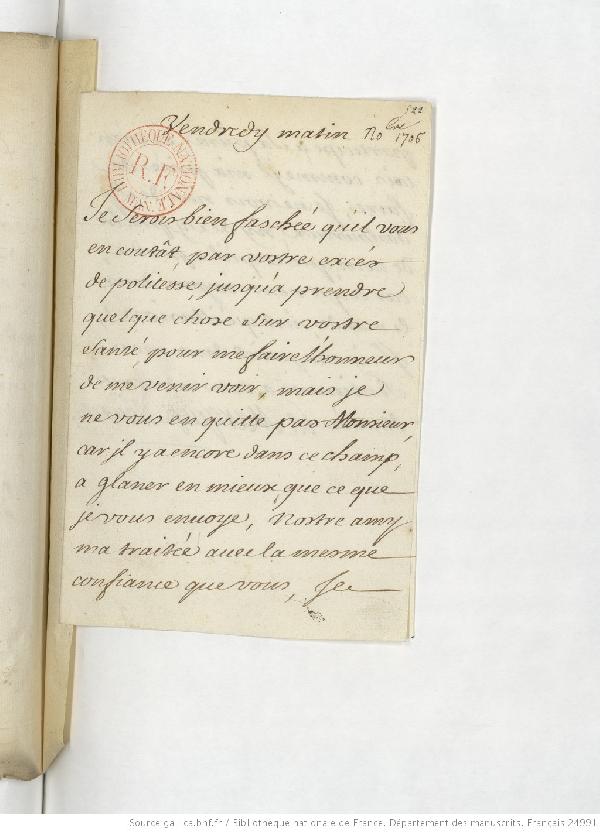 522
Vendredy matin no^bre 1706
BIBLIOTHEQUE NATIONALE
R.F.
MSS
Je serois bien faschée qu'il vous
en coutât, par vostre excés
de politesse, jusqu'a prendre
quelque chose sur vostre
santé, pour me faire l'honneur
de me venir voir, mais je
ne vous en quitte pas Monsieur,
car jl y a encore dans ce champ,
a glaner en mieux, que ce que
je vous envoye, Nostre amy
ma traitée avec la mesme
confiance que vous, Je
Source gallica.bnf.fr / Bibliothèque nationale de France. Département des manuscrits. Français 24991